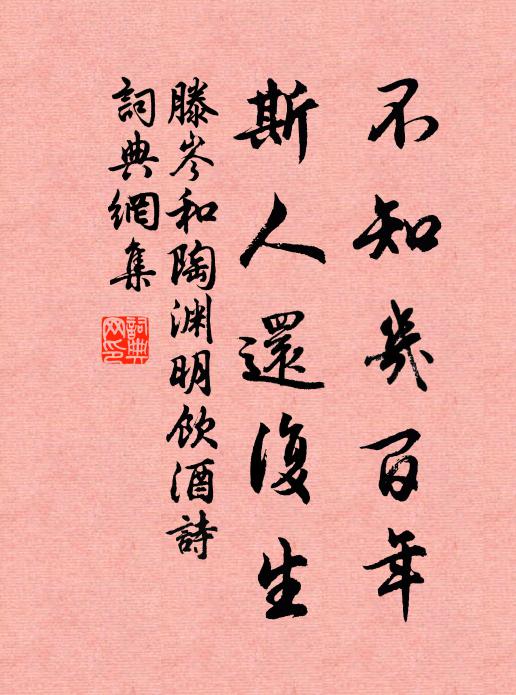 不知幾百年
斯人還復生
滕岑和陶淵明飲酒詩
詞典網集
詞典网印